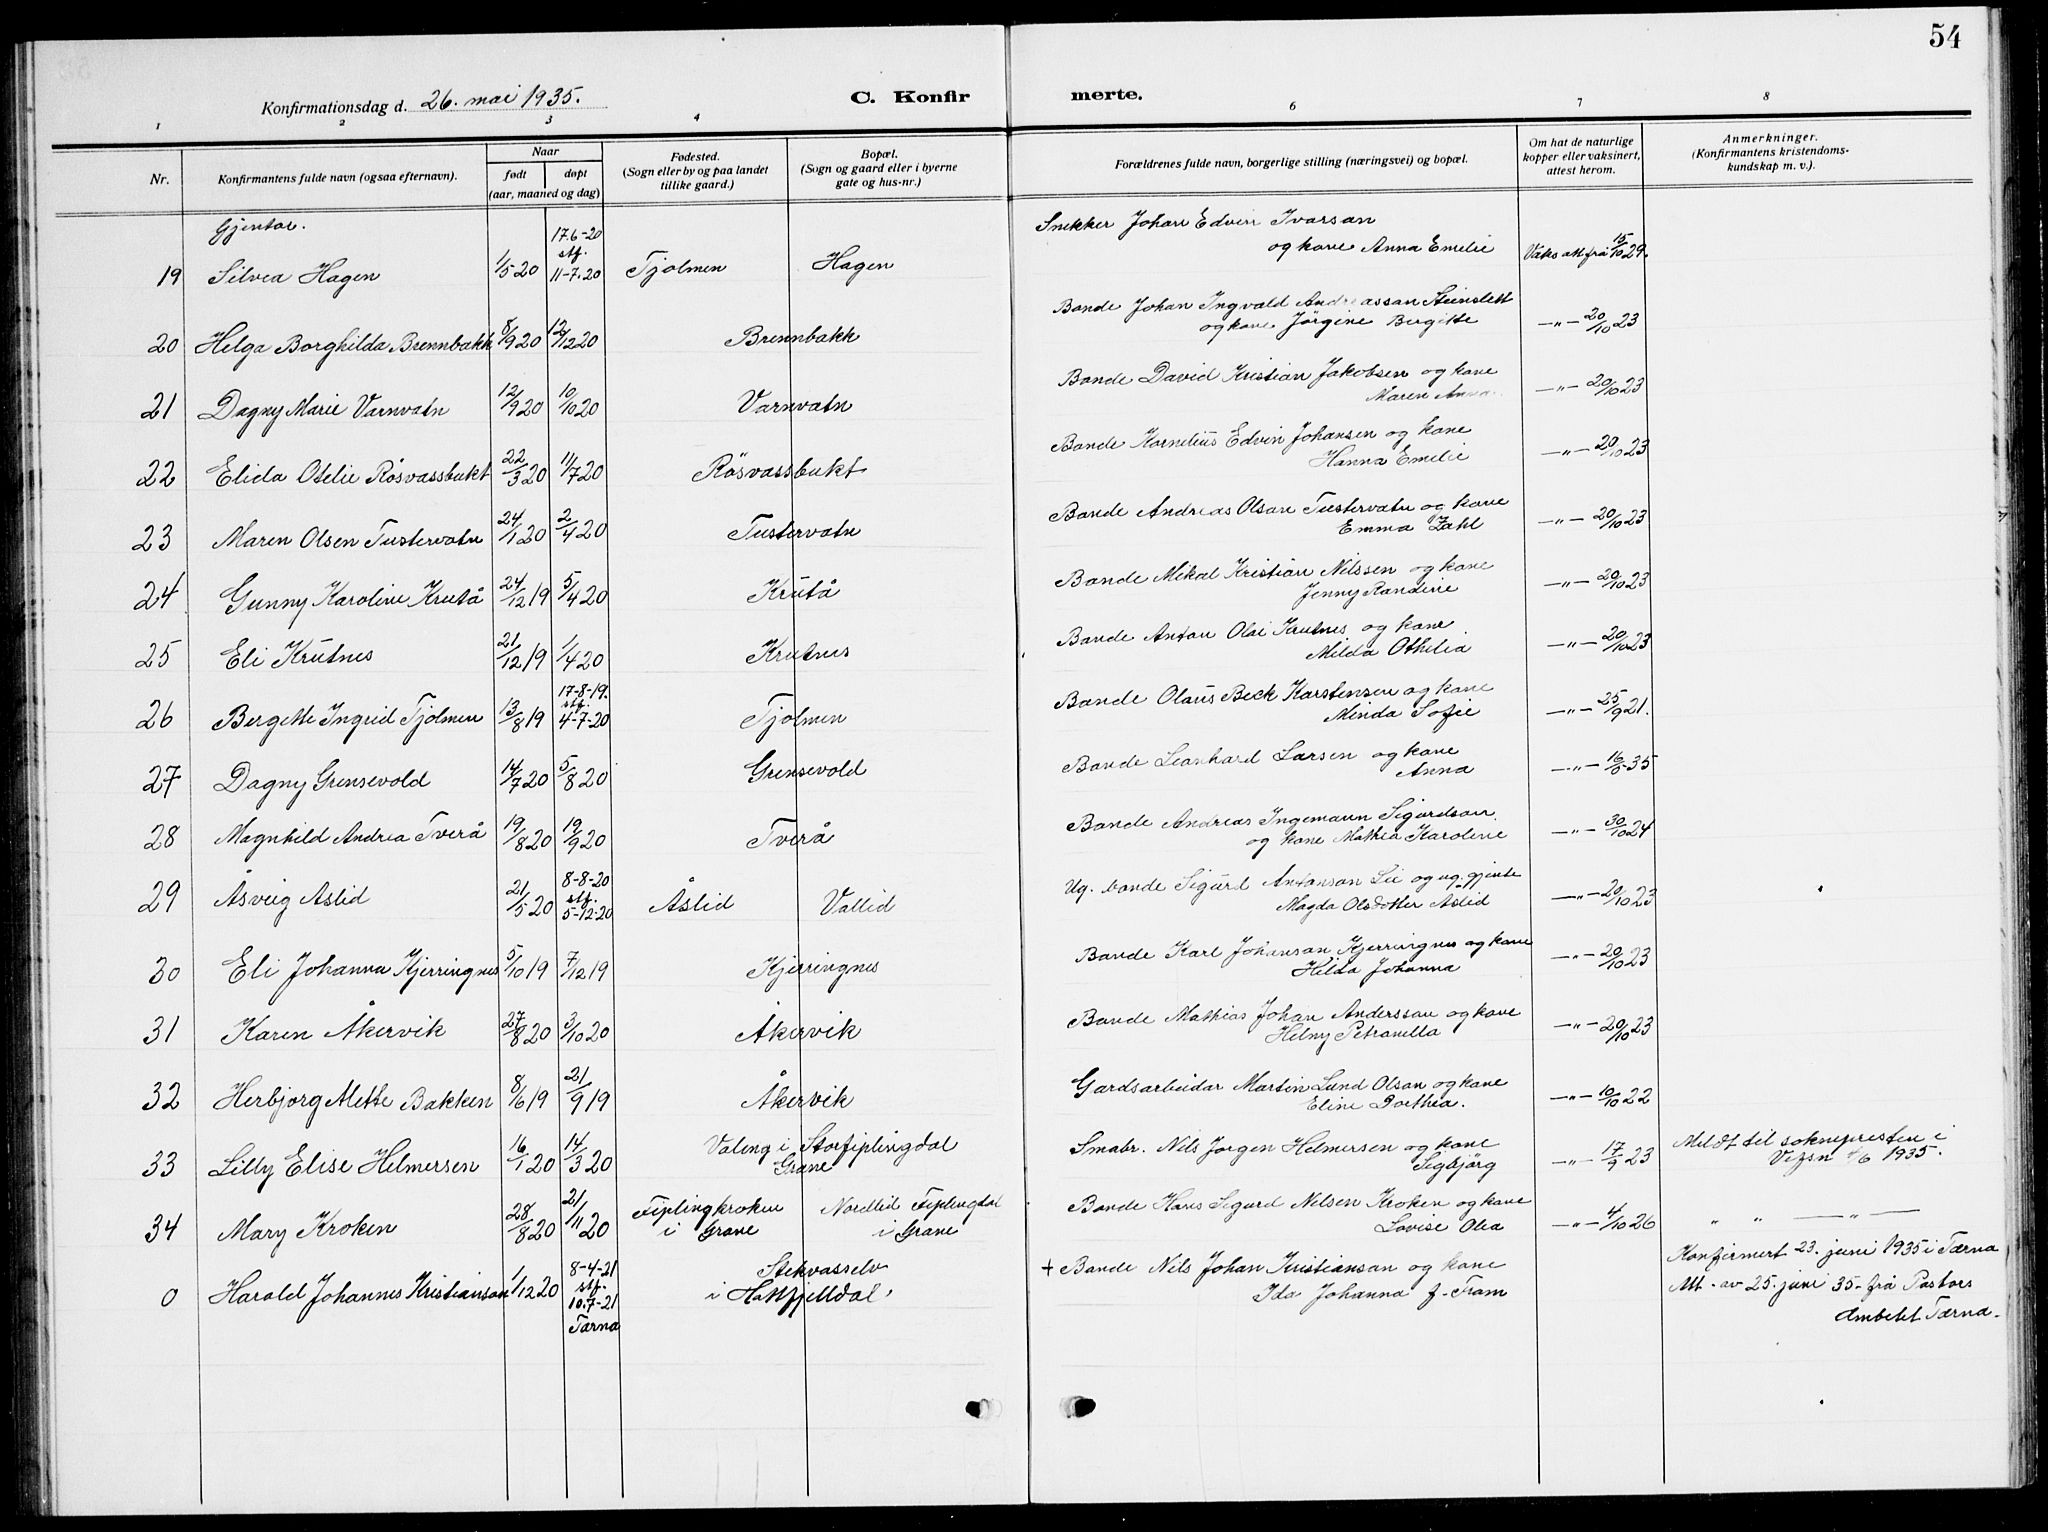 54
Konfirmationsdag d. 26. mai 1935.
C. Konfir
merte.
1 2 3 4 6 7 8
Nr.
Konfirmantens fulde navn (ogsaa efternavn).
Naar
født døpt
(aar, maaned og dag)
Fødested.
(Sogn eller by og paa landet
tillike gaard.)
Bopæl.
(Sogn og gaard eller i byerne
gate og hus-nr.)
Forældrenes fulde navn, borgerlige stilling (næringsvei) og bopæl.
Om hat de naturlige
kopper eller vaksinert,
attest herom.
Anmerkninger.
(Konfirmantens kristendoms-
kundskap m. v.).
Gjentor.
17.6-20
stf.
Snekker Johan Edvin Ivarsan
og kone Anna Emelie
19 Silvea Hagen 1/5 20 11-7-20 Tjolmen Hagen Vaks att frå 15/10 29.
Bonde Johan Ingvald Andreassan Steinslett
20 Helga Borghilda Brennbakk 8/9 20 12/12 20 Brennbakk og kone Jörgine Bergitte —"— 20/10 23
Bonde David Kristian Jakobsen og kone
21 Dagny Marie Varnvatn 12/9 20 10/10 20 Varnvatn Maren Anna —"— 20/10 23
Bonde Kornelius Edvin Johansen og kone
22 Elida Otelie Rösvassbukt 22/3 20 11/7 20 Rösvassbukt Hanna Emelie —"— 20/10 23
Bonde Andreas Olsan Tustervatn og kone
23 Maren Olsen Tustervatn 24/1 20 2/4 20 Tustervatn Emma Zahl —"— 20/10 23
Bonde Mikal Kristian Nilssen og kone
24 Gunny Karoline Krutå 24/12 19 5/4 20 Krutå Jenny Randine —"— 20/10 23
Bonde Anton Olai Krutnes og kone
25 Eli Krutnes 21/12 19 1/4 20 Krutnes Milda Othelia —"— 20/10 23
17-8-19.
stf.
Bonde Olaus Beck Karstensen og kone
26 Bergitte Ingrid Tjolmen 13/8 19 4-7-20 Tjolmen Minda Sofie —"— 25/9 21.
Bonde Leonhard Larsen og kone
27 Dagny Grensevold 14/7 20 5/8 20 Grensevold Anna —"— 16/5 35
Bonde Andreas Ingemann Sigurdsan
28 Magnhild Andrea Tverå 19/8 20 19/9 20 Tverå og kone Mathea Karoline —"— 30/10 24
8-8-20
stf.
Ug. bonde Sigurd Antonsan Lie og ug. gjente
29 Åsveig Åslid 21/5 20 5-12-20 Åslid Vallid Magda Olsdotter Åslid —"— 20/10 23
Bonde Karl Johansan Kjerringnes og kone
30 Eli Johanna Kjerringnes 5/10 19 7/12 19 Kjerringnes Hilda Johanna —"— 20/10 23
Bonde Mathias Johan Anderssan og kone
31 Karen Åkervik 27/8 20 3/10 20 Åkervik Helny Petranella —"— 20/10 23
Gardsarbeidar Martin Lund Olsan og kone
32 Herbjorg Mette Bakken 8/6 19 21/9 19 Åkervik Eline Dorthea. —"— 10/10 22
Valeng i Storfiplingdal
Grane
Smabr. Nils Jorgen Helmersen og kone
33 Lilly Elise Helmersen 16/1 20 14/3 20 Sigbjörg —"— 17/9 23
Meldt til soknepresten i
Vefsn 4/6 1935.
Fiplingkroken
i Grane
Nordlid Fiplingdal
i Grane
Bonde Hans Sigurd Nilsen Kroken og kone
34 Mary Kroken 28/8 20 21/11 20 Lovise Olea —"— 4/10 26 " " —"—
8-4-21
stf.
10.7-21
Tærna
Stekvasselv
i Hattfjelldal.
+ Bonde Nils Johan Kristiansan og kone
0 Harald Johannes Kristiansan 1/12 20 Ida Johanna f. Tram
Konfirmert 23. juni 1935 i Tærna
Att. av 25. juni 35. frå Pastors
Ambetet Tærna.